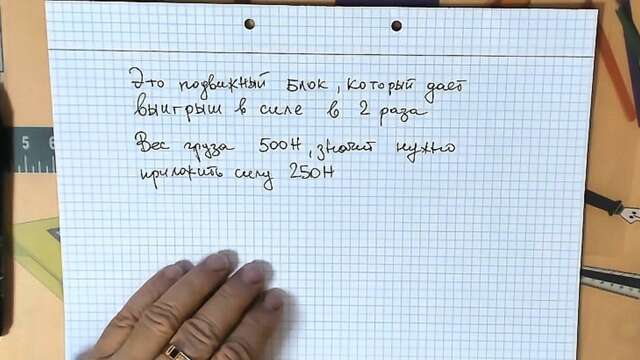 Это подвижный блок, который даёт
выигрыш в силе в 2 раза
Вес груза 500Н, значит нужно
приложить силу 250Н
5 6